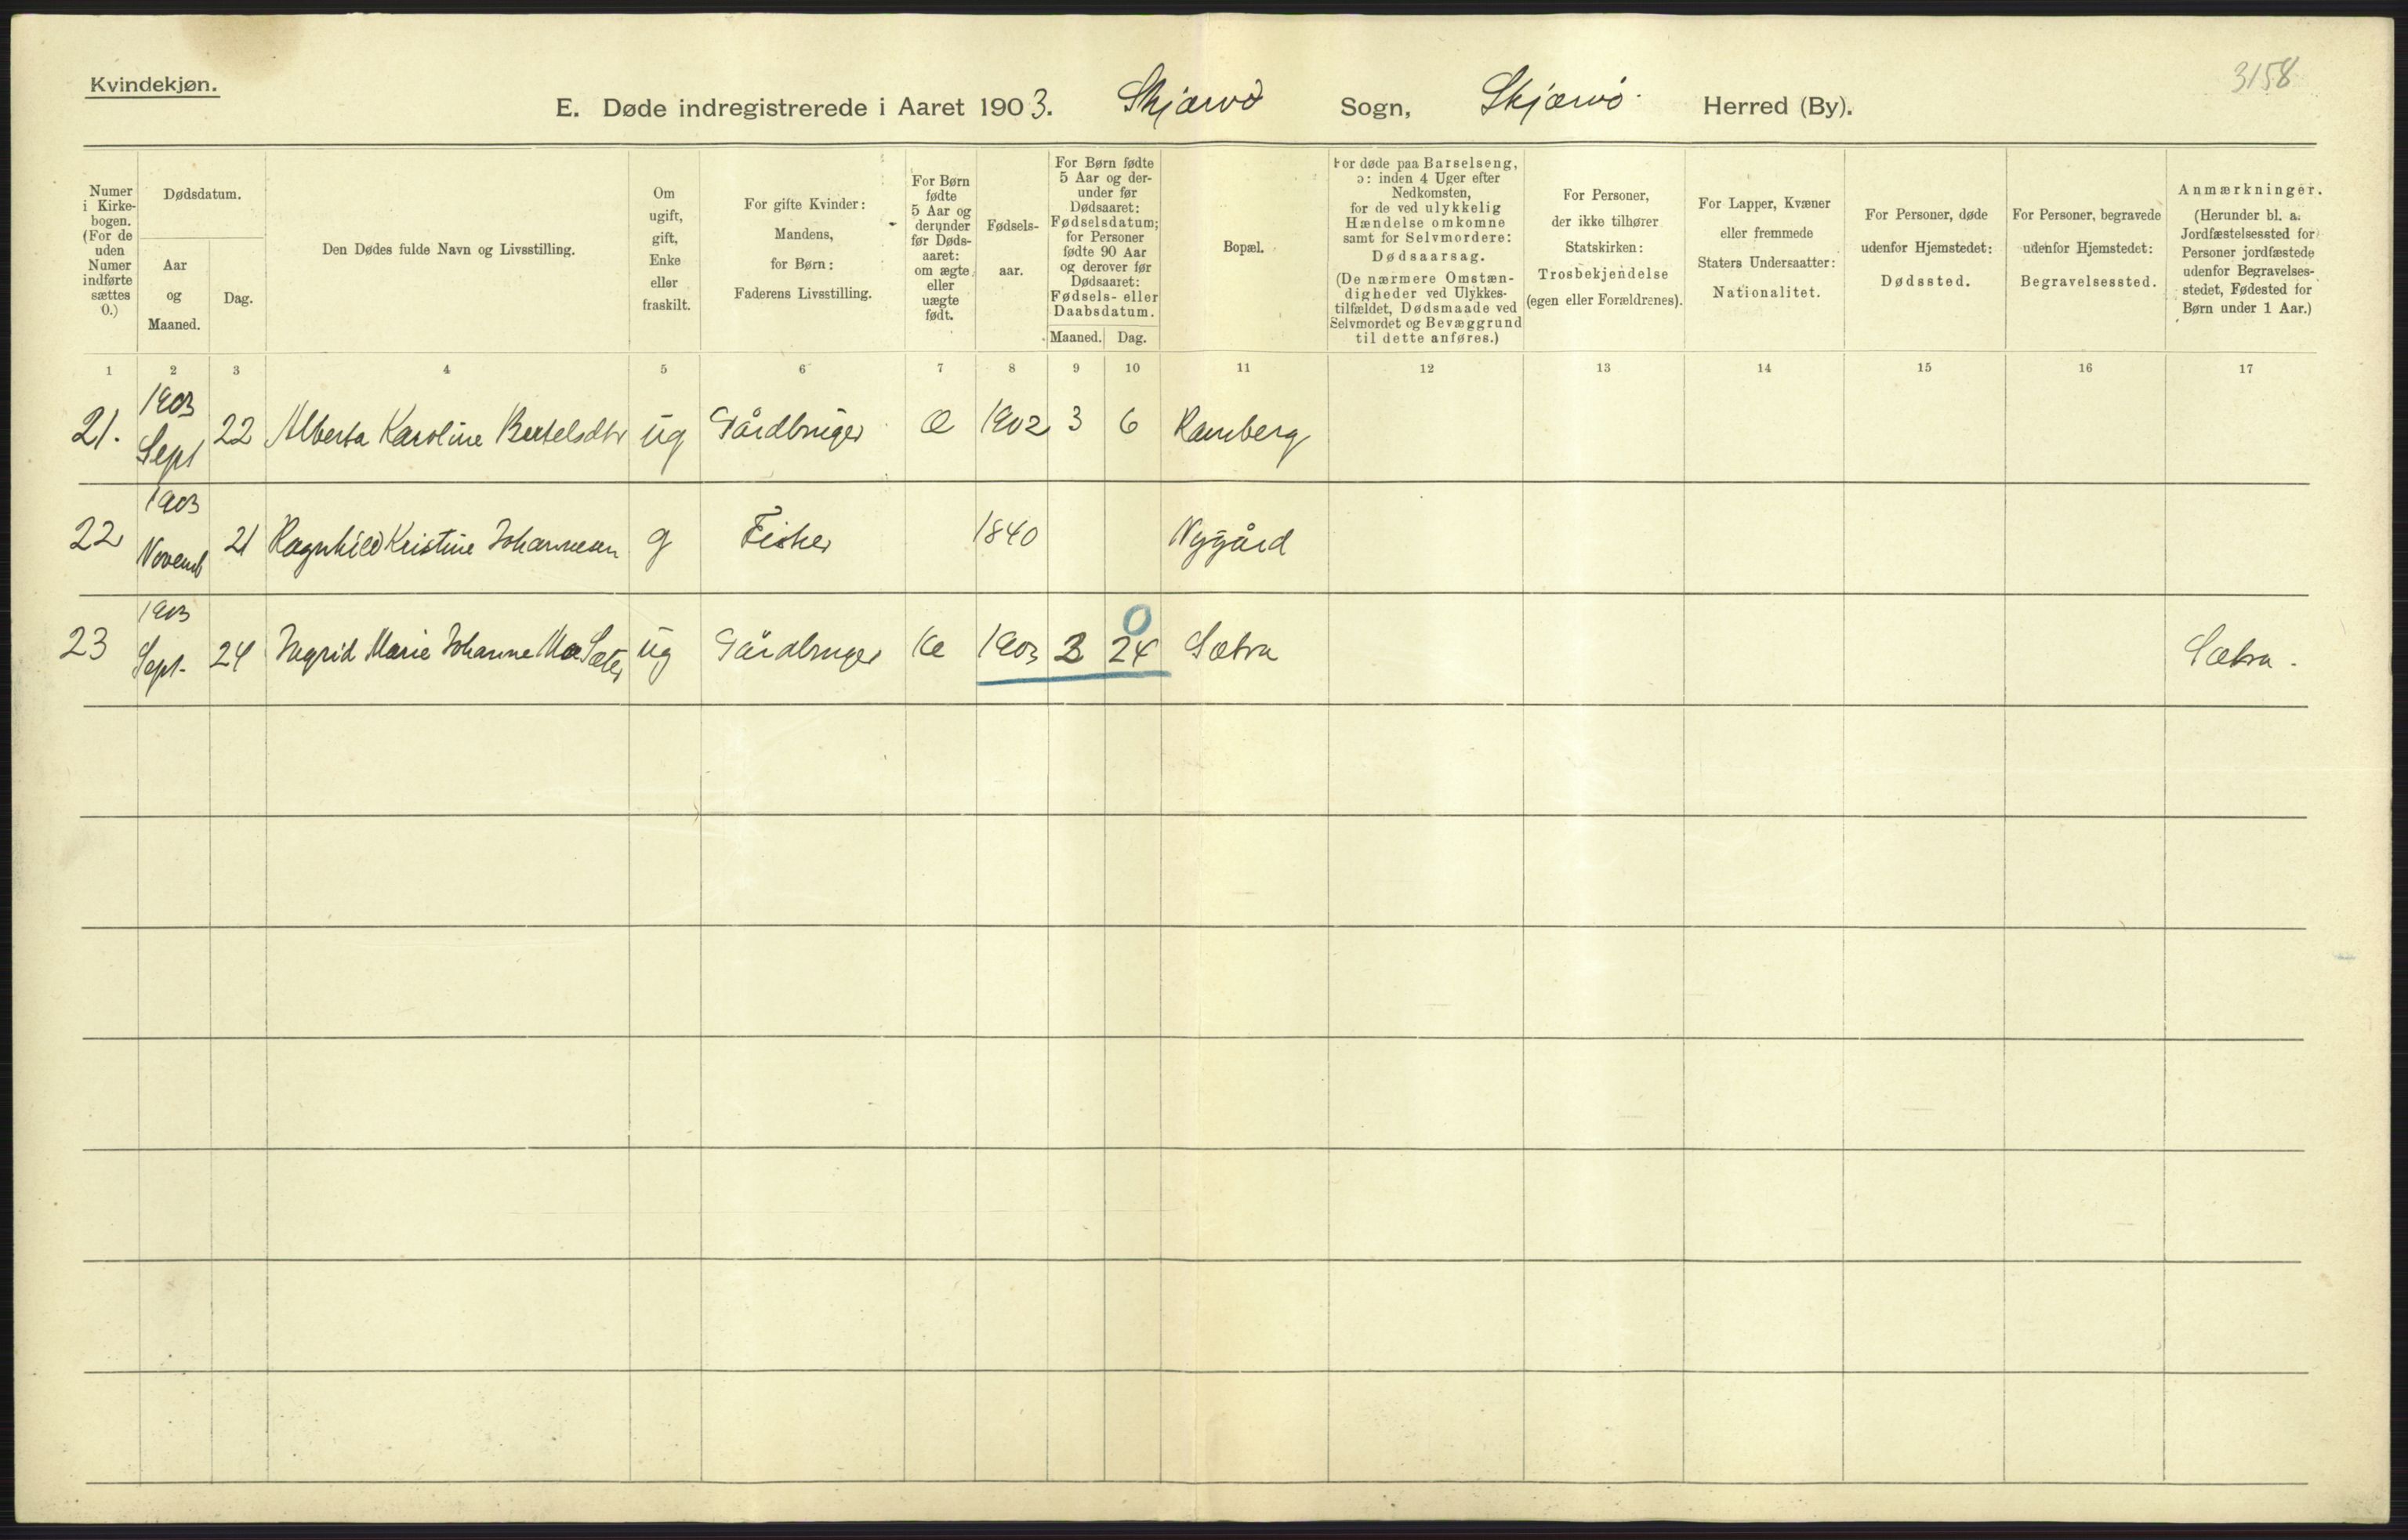 3158
Kvindekjøn.
E. Døde indregistrerede i Aaret 1903. Skjærvø Sogn, Skjærvø Herred (By).
Numer
i Kirke-
bogen.
(For de
uden
Numer
indførte
sættes
0.)
Dødsdatum.
Aar
og
Maaned.
Dag.
Den Dødes fulde Navn og Livsstilling.
Om
ugift,
gift,
Enke
eller
fraskilt.
For gifte Kvinder:
Mandens,
for Børn:
Faderens Livsstilling.
For Børn
fødte
5 Aar og
derunder
før Døds-
aaret:
om ægte
eller
uægte
født.
Fødsels-
aar.
For Børn fødte
5 Aar og der-
under før
Dødsaaret:
Fødselsdatum;
for Personer
fødte 90 Aar
og derover før
Dødsaaret:
Fødsels- eller
Daabsdatum.
Maaned. Dag.
Bopæl.
For døde paa Barselseng,
ɔ: inden 4 Uger efter
Nedkomsten,
for de ved ulykkelig
Hændelse omkomne
samt for Selvmordere:
Dødsaarsag.
(De nærmere Omstæn-
digheder ved Ulykkes-
tilfældet, Dødsmaade ved
Selvmordet og Bevæggrund
til dette anføres.)
For Personer,
der ikke tilhører
Statskirken:
Trosbekjendelse
(egen eller Forældrenes).
For Lapper, Kvæner
eller fremmede
Staters Undersaatter:
Nationalitet.
For Personer, døde
udenfor Hjemstedet:
Dødssted.
For Personer, begravede
udenfor Hjemstedet:
Begravelsessted.
Anmærkninger.
(Herunder bl. a.
Jordfæstelsessted for
Personer jordfæstede
udenfor Begravelses-
stedet, Fødested for
Børn under 1 Aar.)
1 2 3 4 5 6 7 8 9 10 11 12 13 14 15 16 17
1903
21. Sept 22 Alberta Karoline Bertelsdtr ug Gårdbruger 1902 3 6 Ramberg
1903
22 Novemb 21 Ragnhild Kristine Johannesen g Fisker 1840 Nygård
1903 0
23 Sept. 24 Ingrid Marie Johanne Sæter ug Gårdbruger 1903 24 Sætra Sætra.